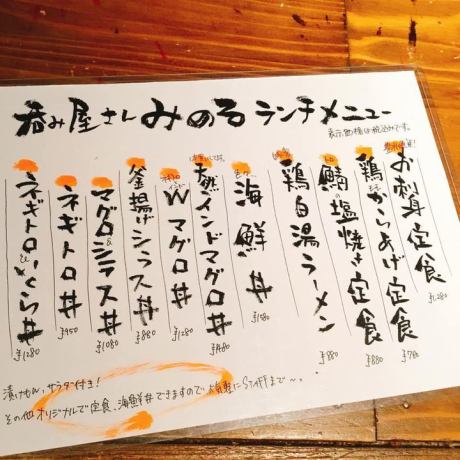 呑み屋さん みのる ランチメニュー
表示価格は税込みです。
お刺身定食
¥1,280
鶏からあげ定食
¥780
鯖塩焼き定食
¥880
鶏白湯ラーメン
海鮮丼
¥1,180
天然インドマグロ丼
¥1,480
Wマグロ丼
¥1,280
釜揚げシラス丼
¥880
マグロ&シラス丼
¥1080
ネギトロ丼
¥950
ネギトロ&いくら丼
¥1280
漬けもん、サラダ付き!
その他オリジナルで定食、海鮮丼できますので お気軽にSTAFFまで〜。